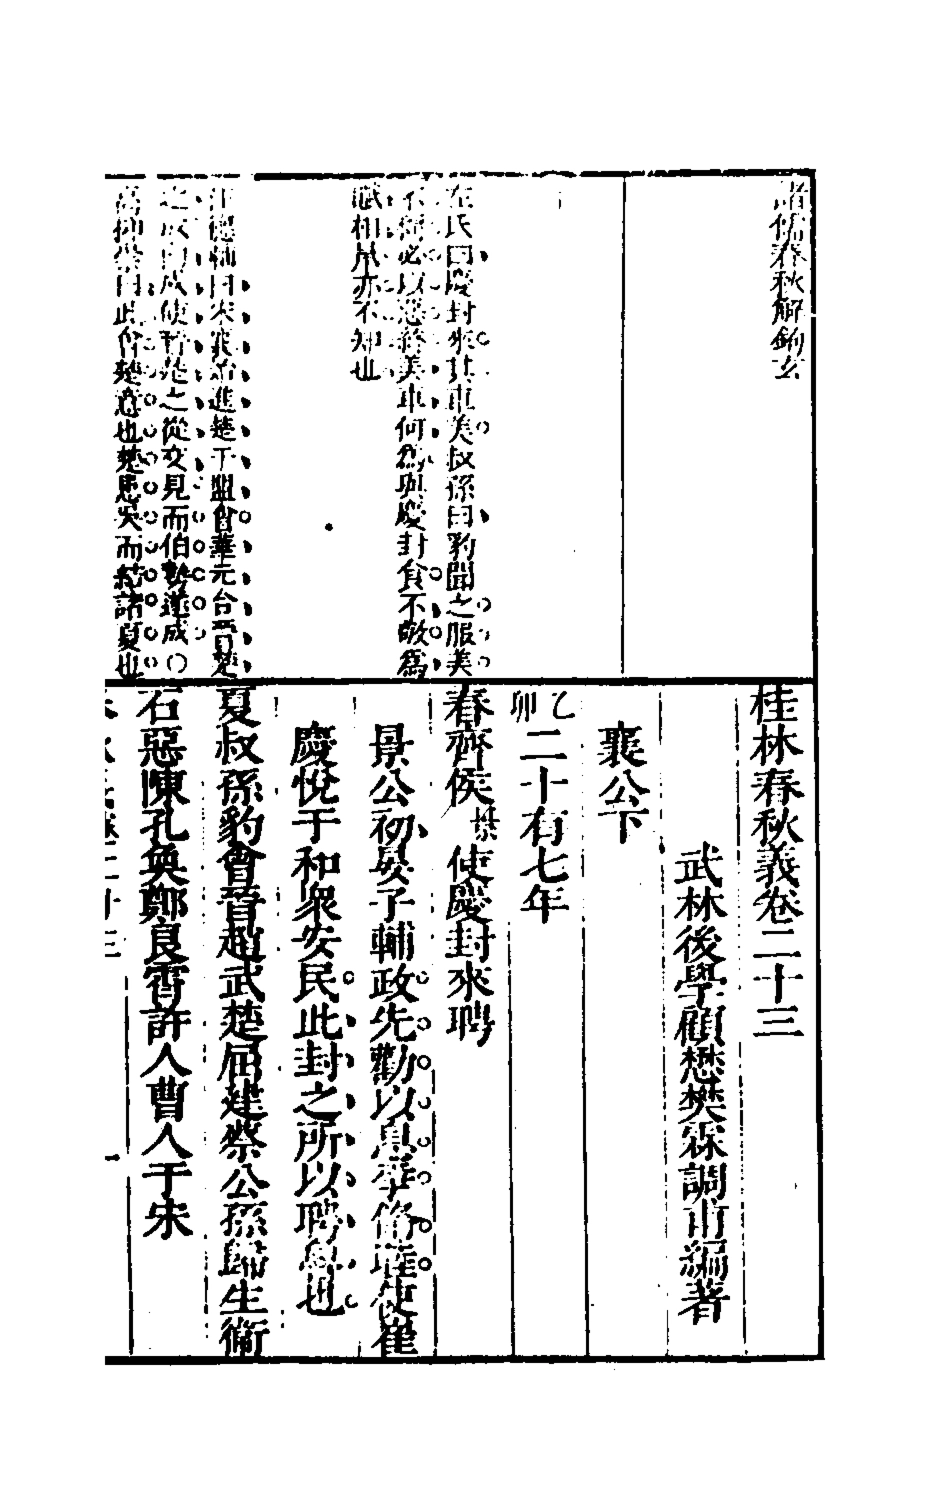 諸儒春秋解鉤玄
左氏曰慶封來其車美叔孫曰豹聞之服美
不稱必以惡終美車何為與慶封食不敬為
賦相鼠亦不知也
汪應軫曰宋襄始進楚于盟會華元合晉楚
之成向戌使晉楚之從交見而伯勢遂成〇
高抑崇曰此會楚意也楚患吳而結諸夏也
桂林春秋義卷二十三
武林後學顧懋樊霖調甫編著
襄公下
乙卯二十有七年
春齊侯使慶封來聘
景公初晏子輔政先勸以息爭脩睦使崔
慶悅于和衆安民此封之所以聘魯也
夏叔孫豹會晉趙武楚屈建蔡公孫歸生衛
石惡陳孔奐鄭良霄許人曹人于宋